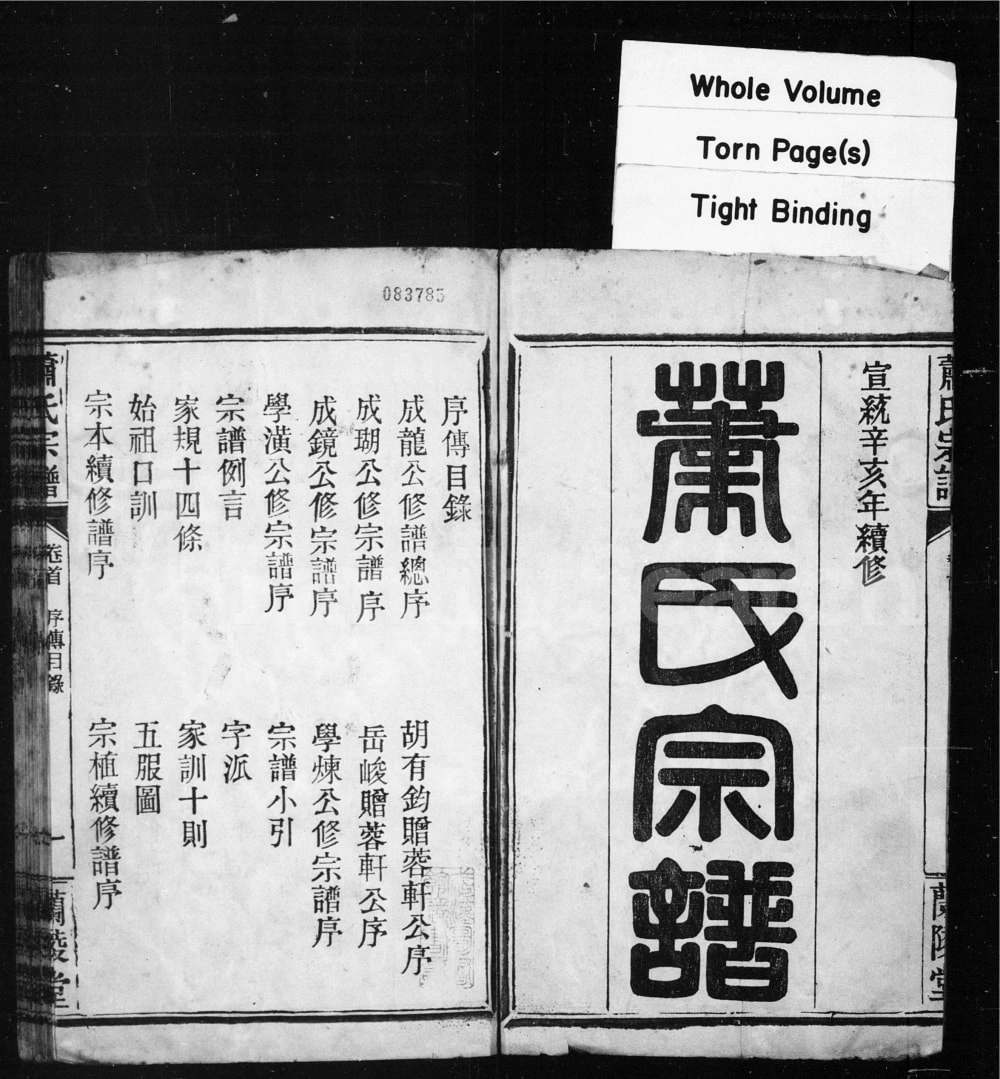 Whole Volume
Torn Page(s)
Tight Binding
083785
宣統辛亥年續修
蕭氏宗譜
蕭氏宗譜
蘭陵堂
序傳目錄
成龍公修譜總序
胡有鈞贈蓉軒公序
成瑚公修宗譜序
岳峻贈蓉軒公序
成鏡公修宗譜序
學煉公修宗譜序
學潢公修宗譜序
宗譜小引
宗譜例言
字派
家規十四條
家訓十則
始祖口訓
五服圖
宗本續修譜序
宗植續修譜序
蕭氏宗譜
卷首
序傳目錄
一
蘭陵堂